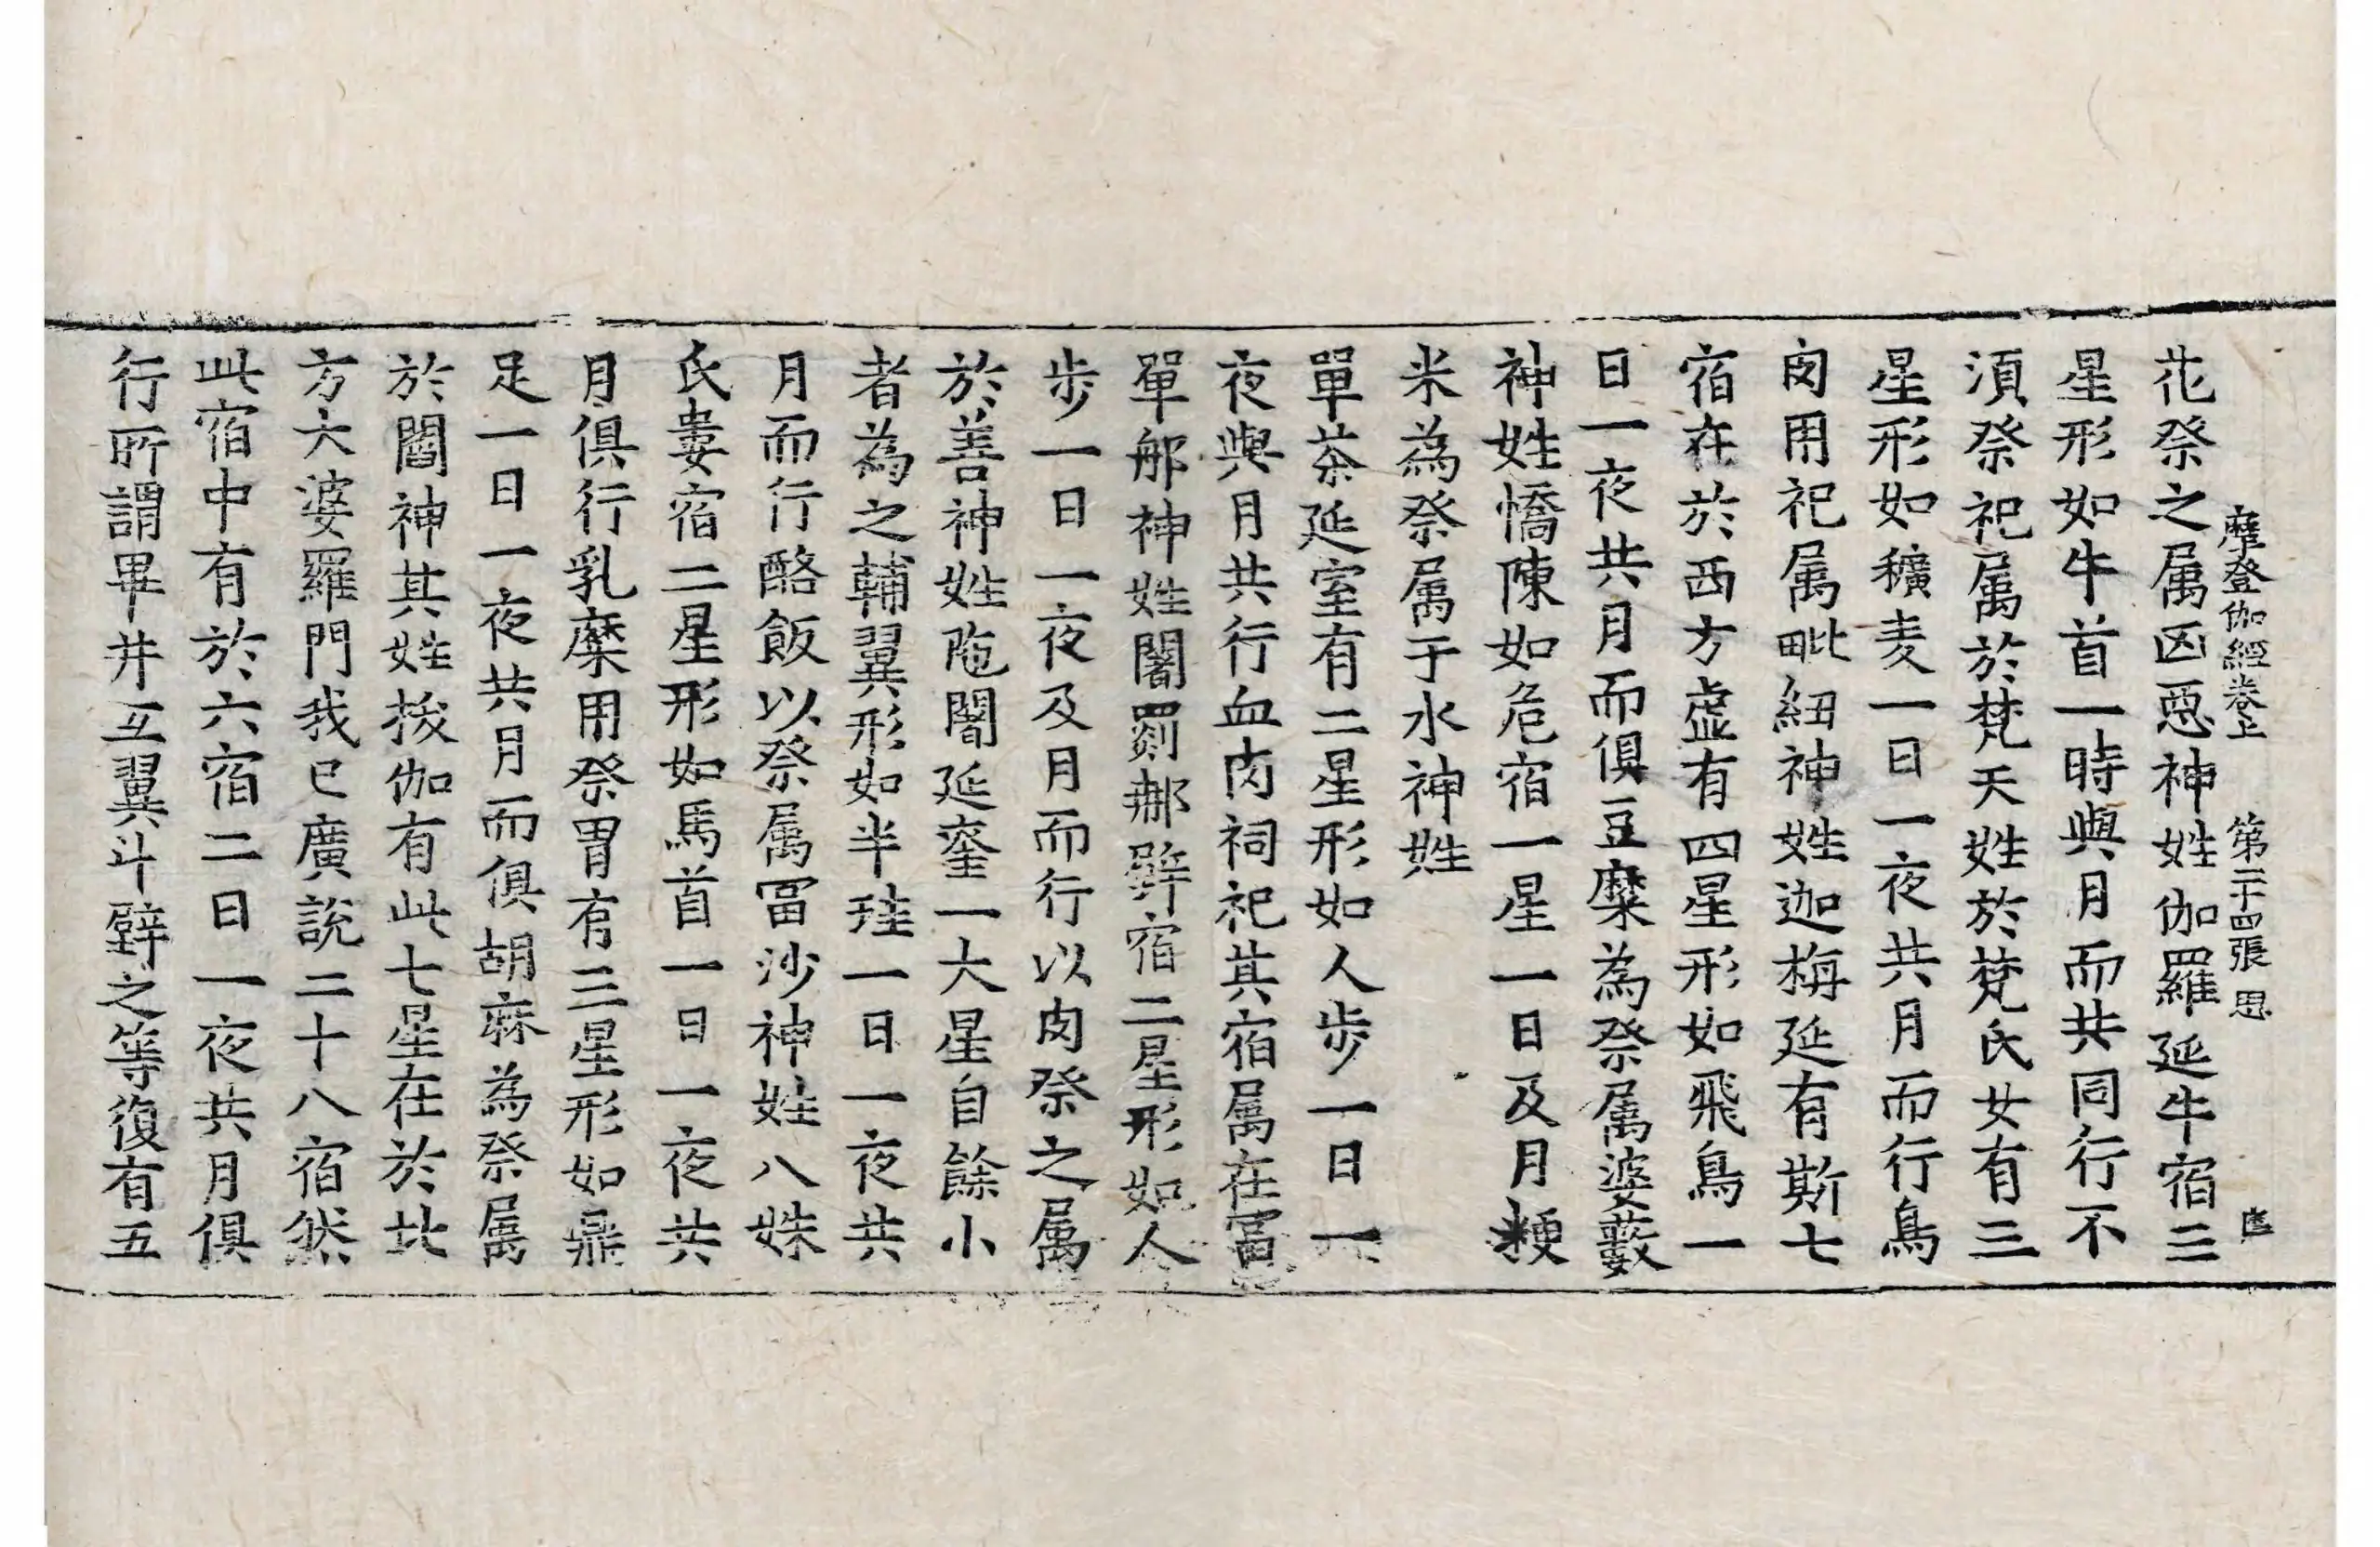 摩登伽經卷上 第二十四張 思
花祭之属凶惡神姓伽羅延牛宿三
星形如牛首一時與月而共同行不
湏祭祀属於梵天姓於梵氏女有三
星形如穬麦一日一夜共月而行鳥
肉用祀属毗紐神姓迦栴延有斯七
宿在於西方虚有四星形如飛鳥一
日一夜共月而俱豆糜為祭属婆藪
神姓憍陳如危宿一星一日及月粳
米為祭属于水神姓
單茶延室有二星形如人步一日一
夜與月共行血肉祠祀其宿属在冨
單郍神姓闍罽那壁宿二星形如人
步一日一夜及月而行以肉祭之属
於善神姓陁闍延奎一大星自餘小
者為之輔翼形如半珪一日一夜共
月而行酪飯以祭属冨沙神姓八姝
氏婁宿二星形如馬首一日一夜共
月俱行乳糜用祭胃有三星形如鼎
足一日一夜共月而俱胡麻為祭属
於閻神其姓拔伽有此七星在於北
方大婆羅門我已廣說二十八宿然
此宿中有於六宿二日一夜共月俱
行所謂畢井互翼斗壁之等復有五